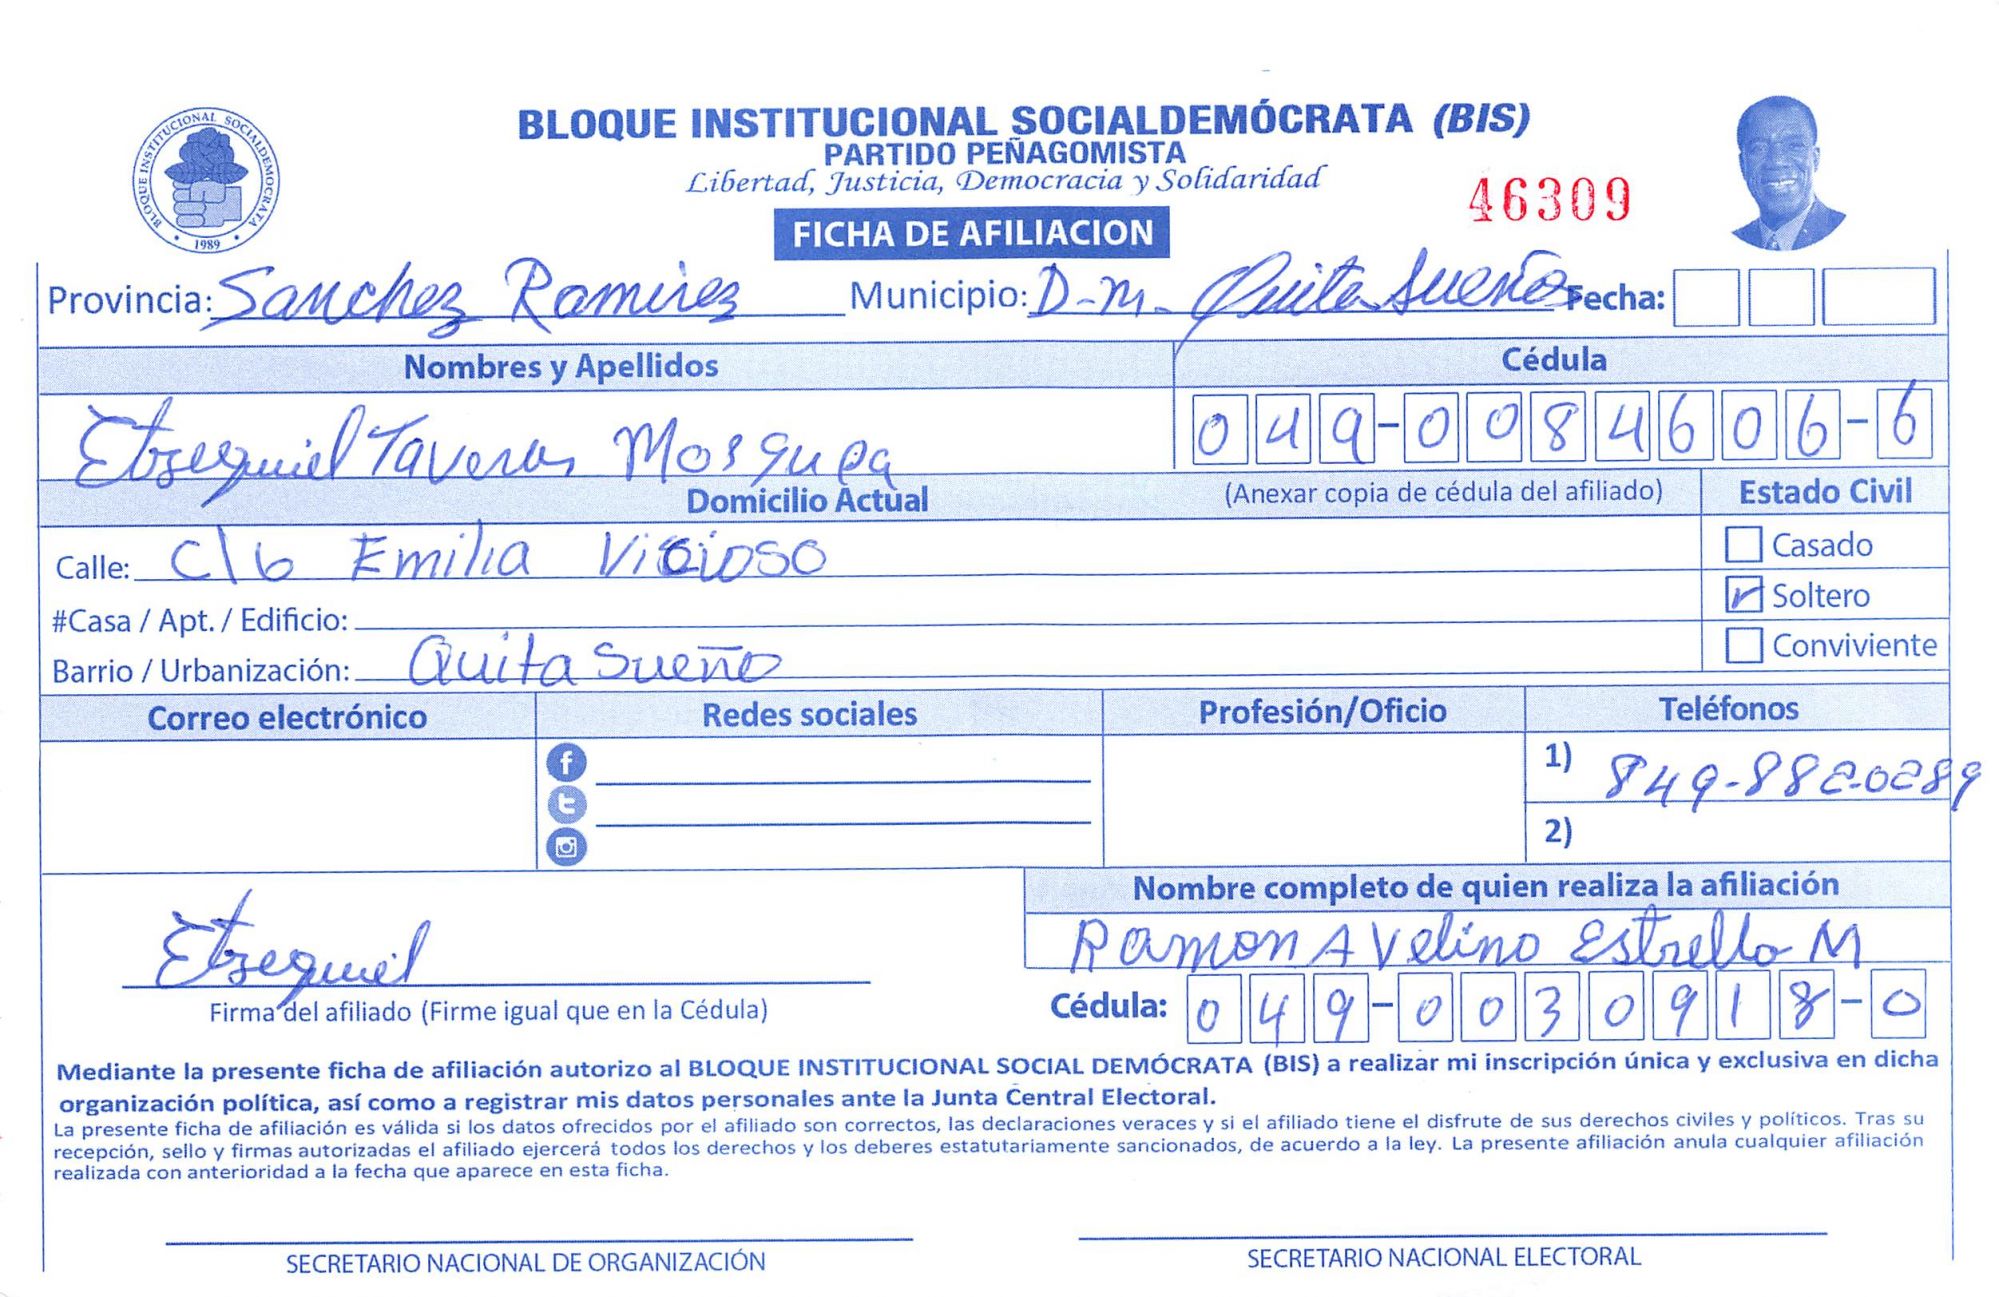 BLOQUE INSTITUCIONAL SOCIALDEMÓCRATA (BIS)
PARTIDO PEÑAGOMISTA
Libertad, Justicia, Democracia y Solidaridad
46309
BLOQUE INSTITUCIONAL SOCIALDEMOCRATA
• 1989 •
FICHA DE AFILIACION
Provincia: Sanchez Ramirez Municipio: D-m. Quita Sueño Fecha:
Nombres y Apellidos Cédula
Etzequiel Taveras Mosquea 049-0084606-6
Domicilio Actual (Anexar copia de cédula del afiliado) Estado Civil
Calle: C\6 Emilia Vicioso Casado
#Casa / Apt. / Edificio: Soltero
Barrio / Urbanización: Quita Sueño Conviviente
Correo electrónico Redes sociales Profesión/Oficio Teléfonos
1) 849-882-0289
2)
Nombre completo de quien realiza la afiliación
Etzequiel Ramon Avelino Estrella M
Firma del afiliado (Firme igual que en la Cédula) Cédula: 049-0030918-0
Mediante la presente ficha de afiliación autorizo al BLOQUE INSTITUCIONAL SOCIAL DEMÓCRATA (BIS) a realizar mi inscripción única y exclusiva en dicha
organización política, así como a registrar mis datos personales ante la Junta Central Electoral.
La presente ficha de afiliación es válida si los datos ofrecidos por el afiliado son correctos, las declaraciones veraces y si el afiliado tiene el disfrute de sus derechos civiles y políticos. Tras su
recepción, sello y firmas autorizadas el afiliado ejercerá todos los derechos y los deberes estatutariamente sancionados, de acuerdo a la ley. La presente afiliación anula cualquier afiliación
realizada con anterioridad a la fecha que aparece en esta ficha.
SECRETARIO NACIONAL DE ORGANIZACIÓN SECRETARIO NACIONAL ELECTORAL